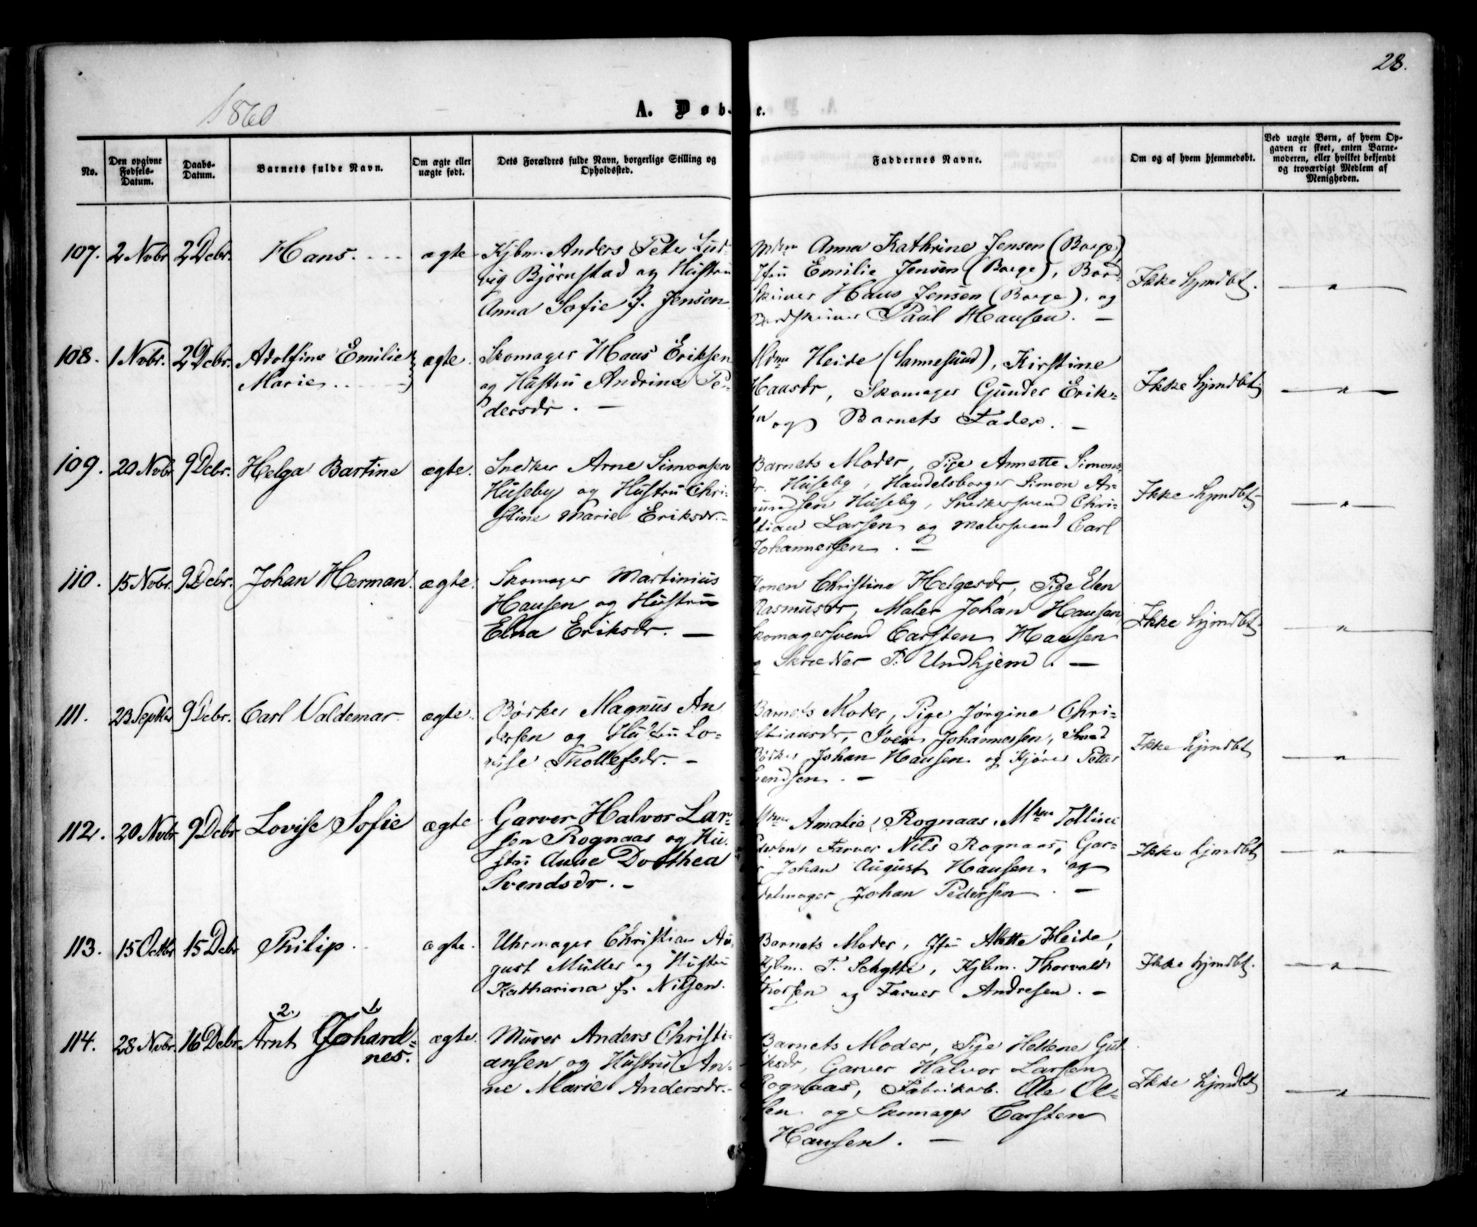 28.
1860
A. Døbte.
No.
Den opgivne Fødsels-Datum.
Daabs-Datum.
Barnets fulde Navn.
Om ægte eller uægte født.
Dets Forældres fulde Navn, borgerlige Stilling og Opholdssted.
Faddernes Navne.
Om og af hvem hjemmedøbt.
Ved uægte Børn, af hvem Opgaven er skeet, enten Barnemoderen, eller hvilket bekjendt og troværdigt Medlem af Menigheden.
107. 2 Novbr. 2 Debr. Hans. ægte
Kjbm. Anders Peter Lud-
vig Bjørnstad og Hustru
Anna Sofie f. Jensen
Anna Kathrine Jensen (Borge),
Emilie Jensen (Borge),
Hans Jensen (Borge), og
Paul Hansen. —
Ikke hjmdbt.
108. 1 Novbr. 2 Debr. Adolfine Emilie
Marie ægte.
Skomager Hans Eriksen
og Hustru Andrine Pe-
dersdr. —
Heide (Sannesund), Kirstine
Hansdr, Skomager Gunder Erik-
og Barnets Fader. —
Ikke hjmdbt
109. 20 Novbr. 9 Debr. Helga Bartine ægte.
Snedker Arne Simonsen
Huseby og Hustru Chri-
stine Marie Eriksdr. —
Barnets Moder, Pige Annette Simons-
dr. Huseby, Handelsborger Simon
Huseby, Snedkersvend Chri-
stian Larsen og Malersvend Carl
Johannesen. —
Ikke hjmdbt
110. 15 Novbr. 9 Debr. Johan Herman. ægte.
Skomager Martinius
Hansen og Hustru
Elna Eriksdr. —
Konen Christine Helgesdr, Pige Elen
Rasmusdr, Maler Johan Hansen
Skomagersvend Carsten Hansen
og Skrædder P. Undhjem. —
Ikke hjmdbt.
111. 23 Septbr 9 Debr. Carl Valdemar. ægte.
Bødker Magnus An
dersen og Hustru Lo-
vise Thollefsdr. —
Barnets Moder, Pige Jørgine Chri-
stiansdr, Iver Johannessen,
Bødker Johan Hansen og Petter
Svendsen. —
Ikke hjmdbt
112. 20 Novbr 9 Debr. Lovise Sofie ægte
Garver Halvor Lar-
sen Rognaas og Hu-
stru Anne Dorthea
Svendsdr. —
Amalie Rognaas,
Farver Nils Rognaas, Gar-
Johan August Hansen og
Johan Pedersen. —
Ikke hjmdbt
113. 15 Octbr 15 Debr Philip. ægte.
Uhrmager Christian Au-
gust Müller og Hustru
Katharina f. Nilsen.
Barnets Moder, Mette Heide,
Kjbm. P. Schytte, Kjbm. Thorvald
Thorsen og Farver Andresen. —
Ikke hjmdbt.
114. 28 Novbr. 16 Debr. Arnt Johard-
nes. ægte.
2. 1
Murer Anders Christi-
ansen og Hustru An-
ne Marie Andersdr. —
Barnets Moder, Pige Hellene
Garver Halvor Larsen
Rognaas, Fabrikarb. Ole Ol-
sen og Skomager Carsten
Hansen. —
Ikke hjmdbt